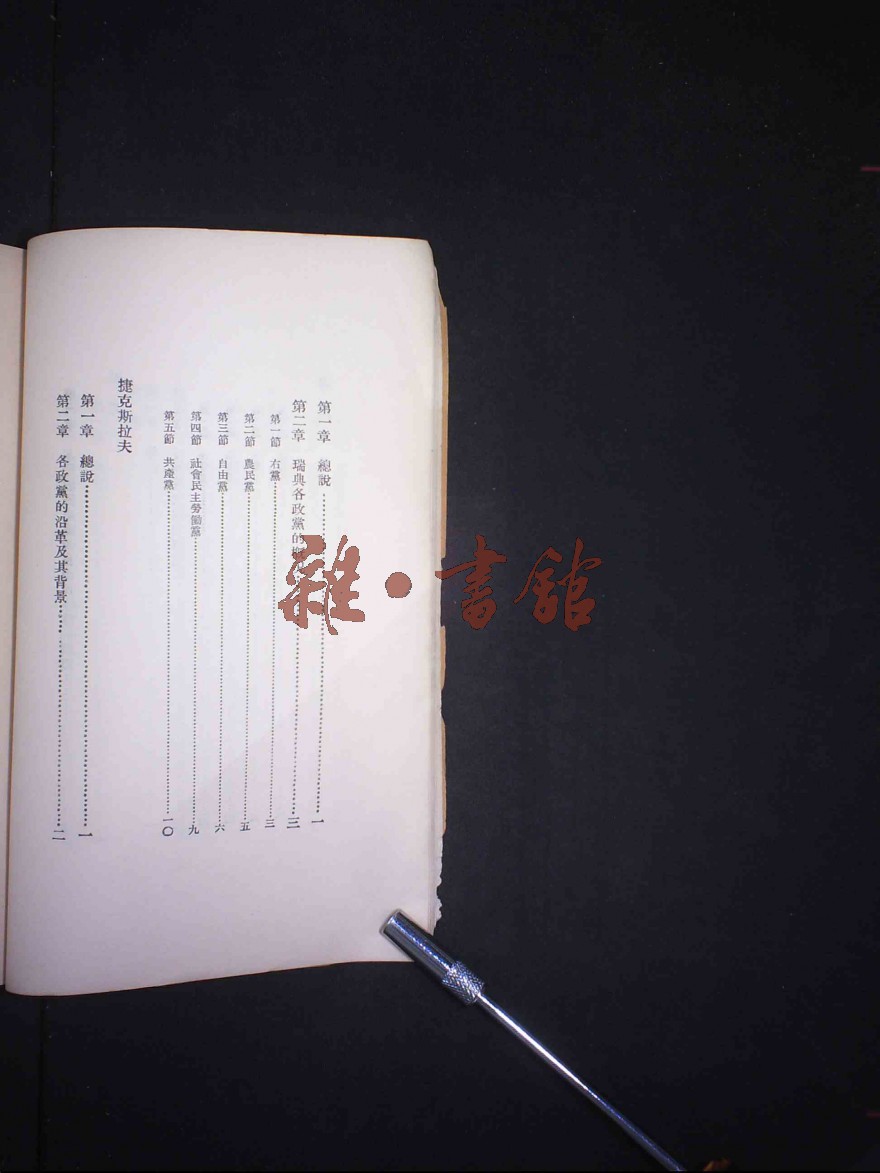 第一章 總說……一
第二章 瑞典各政黨的……三
第一節 右黨……三
第二節 農民黨……五
第三節 自由黨……六
第四節 社會民主勞働黨……九
第五節 共產黨……一〇
捷克斯拉夫
第一章 總說……一
第二章 各政黨的沿革及其背景……二
雜·書館